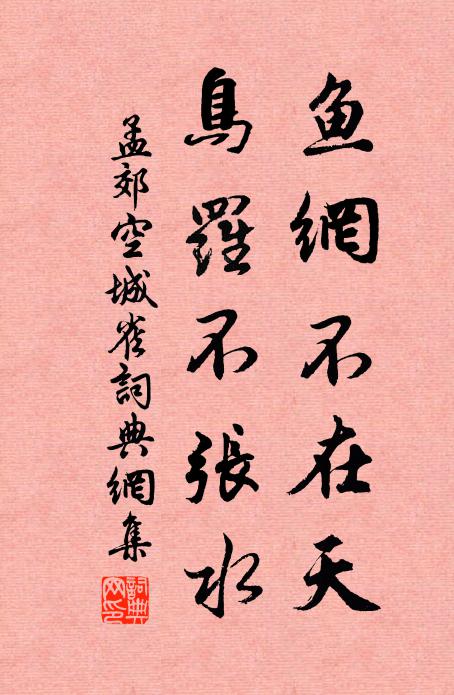 魚網不在天
鳥羅不張水
孟郊空城雀詞典網集
詞典網印